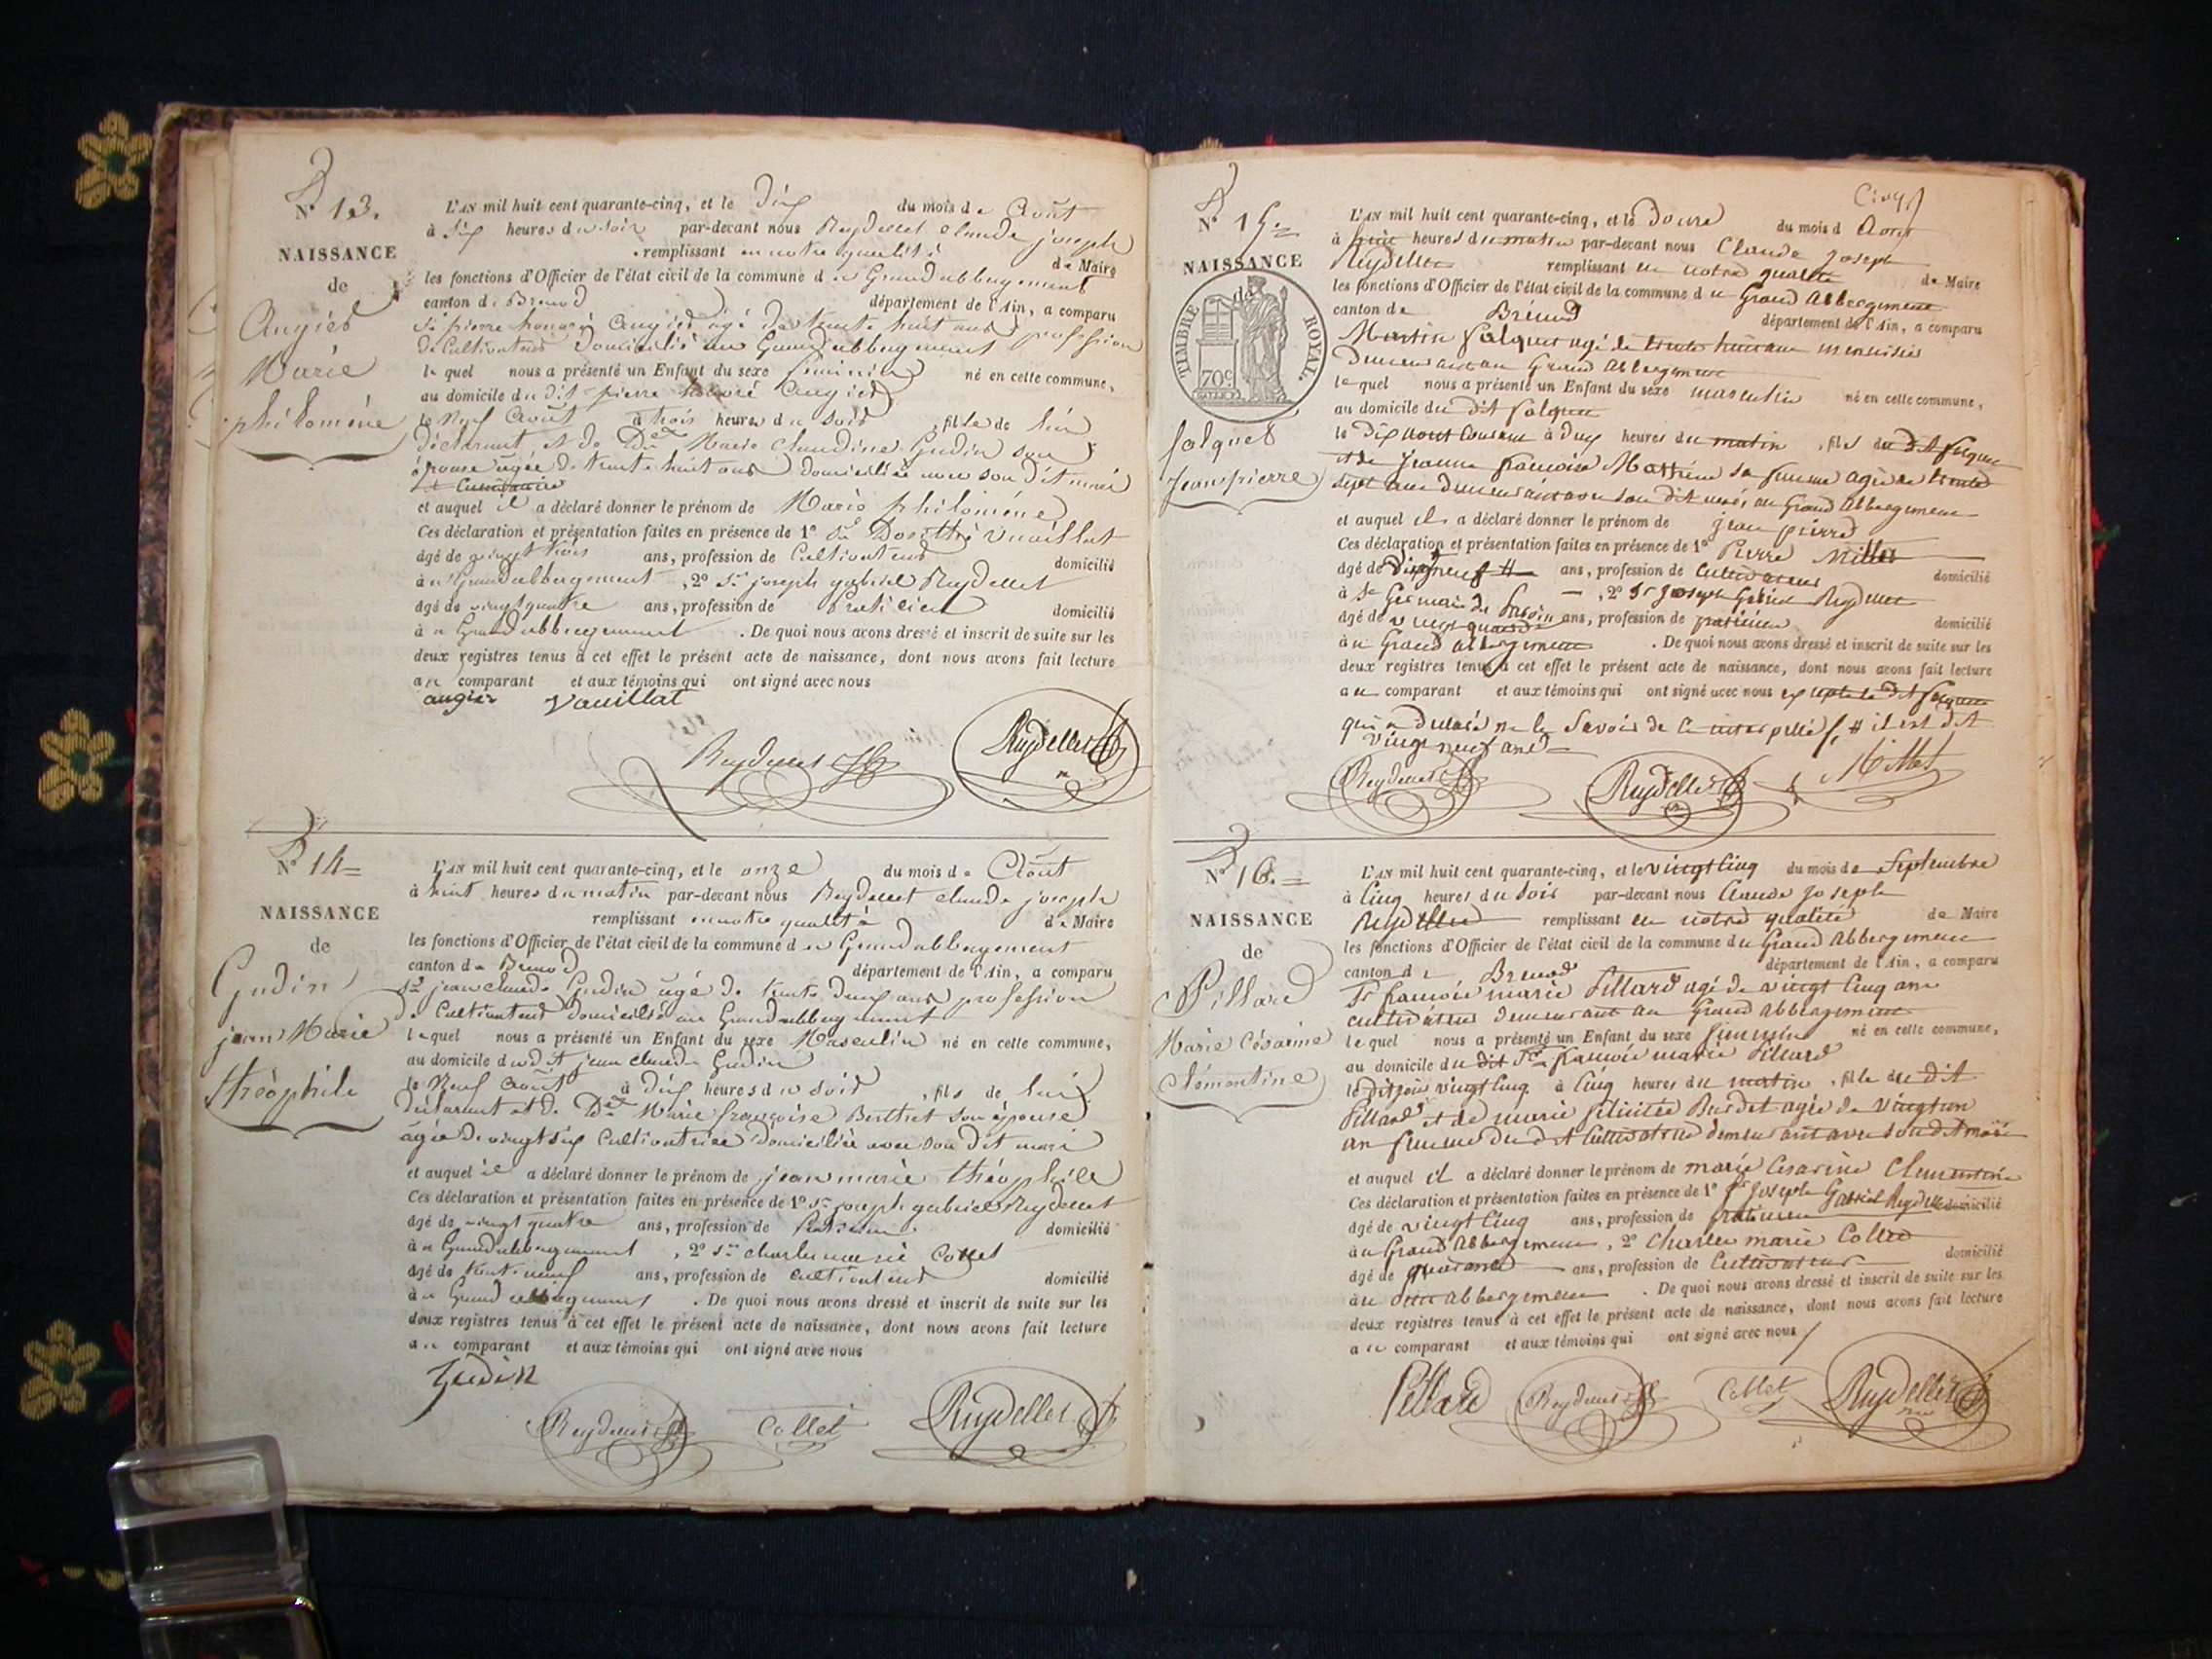 N° 13.
NAISSANCE
de
Augier
Marie
philomène
L'AN mil huit cent quarante-cinq, et le Dix du mois de Août
à Six heures du soir par-devant nous Reydellet claude joseph
remplissant en notre qualité de Maire
les fonctions d'Officier de l'état civil de la commune du Grand abbergement
canton de Brenod département de l'Ain, a comparu
Sr pierre honoré Augier agé de trente huit ans profession
de Cultivateur Domicilié au Grand abbergement
lequel nous a présenté un Enfant du sexe féminin né en cette commune,
au domicile du dit pierre honoré Augier
le Neuf Août à trois heures du soir, fille de lui
déclarant et de De Marie claudine Gudin son
épouse agée de trente huit ans domiciliée avec son dit mari
et auquel il a déclaré donner le prénom de Marie philomène
Ces déclaration et présentation faites en présence de 1° Sr Dosithé Vuaillat
âgé de vingt trois ans, profession de Cultivateur domicilié
à u Grand abbergement, 2° Sr joseph gabriel Reydellet
âgé de vingt quatre ans, profession de Praticien domicilié
à u Grand abbergement. De quoi nous avons dressé et inscrit de suite sur les
deux registres tenus à cet effet le présent acte de naissance, dont nous avons fait lecture
au comparant et aux témoins qui ont signé avec nous
augier Vauillat
Reydellet Reydellet
N° 14
NAISSANCE
de
Gudin
jean Marie
théophile
L'AN mil huit cent quarante-cinq, et le onze du mois de Août
à huit heures du matin par-devant nous Reydellet claude joseph
remplissant en notre qualité de Maire
les fonctions d'Officier de l'état civil de la commune du Grand abbergement
canton de Brenod département de l'Ain, a comparu
Sr jean claude Gudin agé de trente deux ans profession
de Cultivateur domicilié au Grand abbergement
lequel nous a présenté un Enfant du sexe Masculin né en cette commune,
au domicile du dit jean claude Gudin
le Neuf Août à Dix heures du soir, fils de lui
déclarant et de De Marie françoise Berthet son épouse
agée de vingt six Cultivatrice domiciliée avec son dit mari
et auquel il a déclaré donner le prénom de jean marie théophile
Ces déclaration et présentation faites en présence de 1° Sr joseph gabriel Reydellet
âgé de vingt quatre ans, profession de Praticien domicilié
à u Grand abbergement, 2° Sr charles marie Collet
âgé de trente neuf ans, profession de cultivateur domicilié
à u Grand abbergement. De quoi nous avons dressé et inscrit de suite sur les
deux registres tenus à cet effet le présent acte de naissance, dont nous avons fait lecture
au comparant et aux témoins qui ont signé avec nous
Gudin
Reydellet Collet Reydellet
Cinq
N° 15
NAISSANCE
de
TIMBRE ROYAL.
70c
Jean pierre
L'AN mil huit cent quarante-cinq, et le douze du mois d Aout
à huit heures du matin par-devant nous Claude Joseph
Reydellet remplissant en notre qualité de Maire
les fonctions d'Officier de l'état civil de la commune du Grand Abbergement
canton de Brénod département de l'Ain, a comparu
Martin agé de trente huit ans menuisier
demeurant au Grand Abbergement
lequel nous a présenté un Enfant du sexe masculin né en cette commune,
au domicile du dit
le Dix aout courant à deux heures du matin, fils du dit
et de Jeanne françoise sa femme agée de trente
sept ans demeurant avec son dit mari, au Grand Abbergement
et auquel il a déclaré donner le prénom de jean pierre
Ces déclaration et présentation faites en présence de 1° Pierre Millet
âgé de dix neuf # ans, profession de cultivateur domicilié
à St Germain de Joux, 2° Sr Joseph Gabriel Reydellet
âgé de vingt quatre ans, profession de praticien domicilié
à u Grand abbergement. De quoi nous avons dressé et inscrit de suite sur les
deux registres tenus à cet effet le présent acte de naissance, dont nous avons fait lecture
au comparant et aux témoins qui ont signé avec nous excepté le dit
qui a déclaré ne le Savoir de ce interpellé, # il est dit
vingt neuf ans
Reydellet Reydellet Millet
N° 16.
NAISSANCE
de
Pillard
Marie Césarine
Clémentine
L'AN mil huit cent quarante-cinq, et le vingt cinq du mois de Septembre
à Cinq heures du Soir par-devant nous Claude Joseph
Reydellet remplissant en notre qualité de Maire
les fonctions d'Officier de l'état civil de la commune du Grand Abbergement
canton de Brenod département de l'Ain, a comparu
Sr françois marie Pillard agé de vingt cinq ans
cultivateur demeurant au Grand Abbergement
lequel nous a présenté un Enfant du sexe feminin né en cette commune,
au domicile du dit Sr françois marie Pillard
le dit jour vingt cinq à Cinq heures du matin, fille du dit
Pillard et de marie félicitée Burdet agée de vingt un
an femme du dit Cultivatrice demeurant avec son dit mari
et auquel il a déclaré donner le prénom de marie Césarine Clementine
Ces déclaration et présentation faites en présence de 1° Sr Joseph Gabriel Reydellet domicilié
âgé de vingt cinq ans, profession de praticien
à u Grand Abbergement, 2° Charles marie Collet
âgé de quarante ans, profession de Cultivateur domicilié
à u abbergement. De quoi nous avons dressé et inscrit de suite sur les
deux registres tenus à cet effet le présent acte de naissance, dont nous avons fait lecture
au comparant et aux témoins qui ont signé avec nous
Pillard Reydellet Collet Reydellet